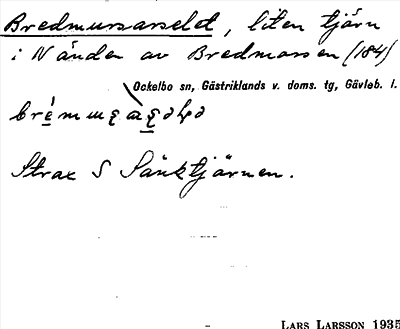 Bredmursarselet, liten tjärn
i Nänden av Bredmossen (184)
Ockelbo sn, Gästriklands v. doms. tg, Gävleb. l.
Strax S Sänktjärnen.
LARS LARSSON 1935